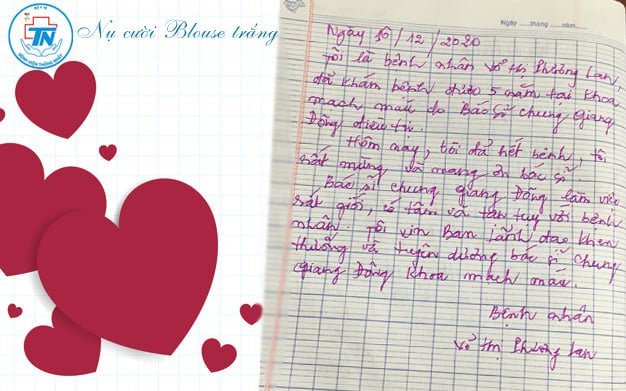 BỘ Y TẾ
TN
BỆNH VIỆN THỐNG NHẤT
Nụ cười Blouse trắng
Ngày.....tháng.....năm.....
Ngày 10/12/2020
Tôi là bệnh nhân Võ thị Phương Lan,
đã khám bệnh được 5 năm tại khoa
mạch máu do Bác sĩ chung giang
Đông điều trị.
Hôm nay, tôi đã hết bệnh, tôi
rất mừng và mang ơn bác sĩ.
Bác sĩ chung giang Đông làm việc
rất giỏi, có tâm và tận tụy với bệnh
nhân. Tôi xin Ban lãnh đạo khen
thưởng và tuyên dương bác sĩ chung
giang Đông khoa mạch máu.
Bệnh nhân
Võ thị Phương Lan